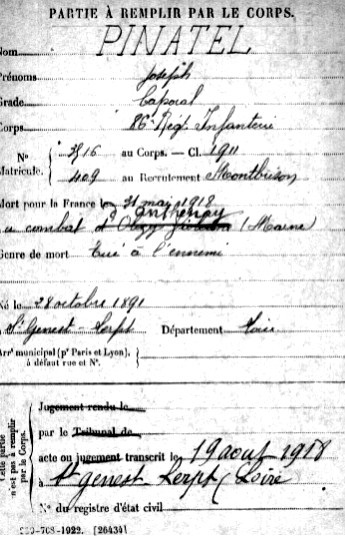 PARTIE À REMPLIR PAR LE CORPS.
Nom PINATEL
Prénoms Joseph
Grade Caporal
Corps 86e Régt Infanterie
N° Matricule. 3516 au Corps. — Cl. 1911
409 au Recrutement Montbrison
Mort pour la France le 31 mai 1918
Anthenay
au combat d' (Marne)
Genre de mort Tué à l'ennemi
Né le 28 octobre 1891
à St Genest-Lerpt Département Loire
Arrt municipal (pr Paris et Lyon),
à défaut rue et N°.
Cette partie n'est pas à remplir par le Corps.
Jugement rendu le
par le Tribunal de
acte ou jugement transcrit le 19 aout 1918
à St genest Lerpt (Loire
N° du registre d'état civil
-708-1922. [26434]